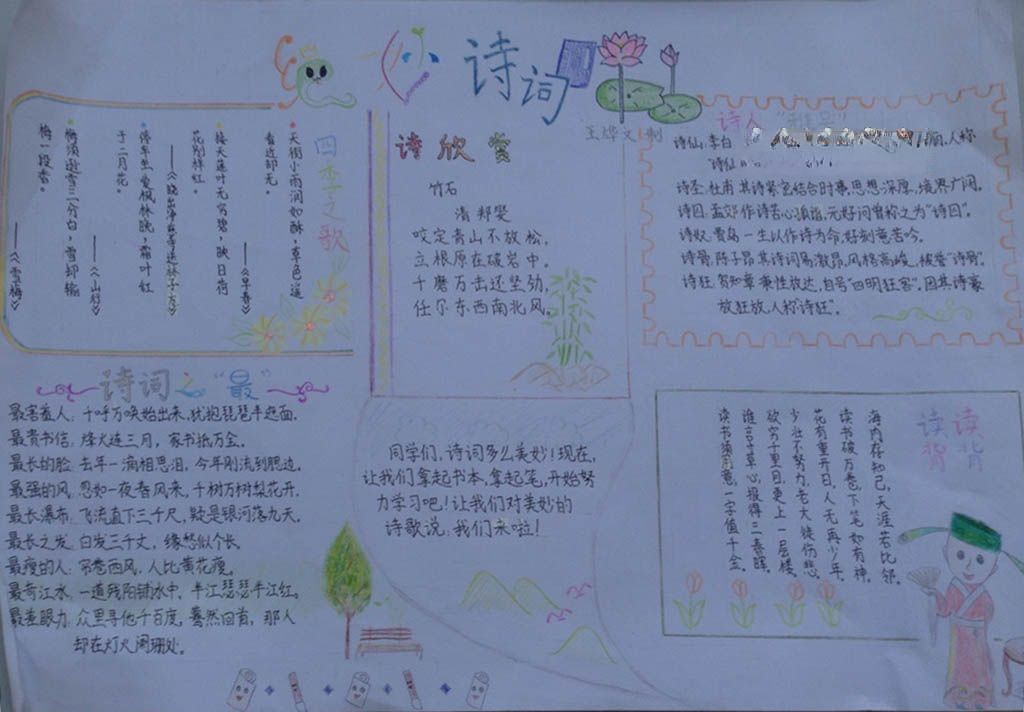 妙
诗词
王烨文 制
四季之歌
天街小雨润如酥,草色遥
看近却无。
——《早春》
接天莲叶无穷碧,映日荷
花别样红。
——《晓出净慈寺送林子方》
停车坐爱枫林晚,霜叶红
于二月花。
——《山行》
梅须逊雪三分白,雪却输
梅一段香。
——《雪梅》
诗欣赏
竹石
清 郑燮
咬定青山不放松,
立根原在破岩中。
千磨万击还坚劲,
任尔东西南北风。
诗人"称号"
诗仙:李白
人称
诗仙
诗圣:杜甫 其诗紧密结合时事,思想深厚,境界广阔。
诗囚:孟郊 作诗苦心孤诣,元好问曾称之为"诗囚"。
诗奴:贾岛 一生以作诗为命,好刻意苦吟。
诗骨:陈子昂 其诗词易激昂,风格高峻,被誉"诗骨"。
诗狂:贺知章 秉性放达,自号"四明狂客"。因其诗豪
放狂放,人称诗狂"。
诗词之"最"
最害羞人:千呼万唤始出来,犹抱琵琶半遮面。
最贵书信:烽火连三月,家书抵万金。
最长的脸:去年一滴相思泪,今年刚流到腮边。
最强的风:忽如一夜春风来,千树万树梨花开。
最长瀑布:飞流直下三千尺,疑是银河落九天。
最长之发:白发三千丈,缘愁似个长。
最瘦的人:帘卷西风,人比黄花瘦。
最奇江水:一道残阳铺水中,半江瑟瑟半江红。
最差眼力:众里寻他千百度,蓦然回首,那人
却在灯火阑珊处。
同学们,诗词多么美妙!现在,
让我们拿起书本,拿起笔,开始努
力学习吧!让我们对美妙的
诗歌说,我们来啦!
读读
背背
海内存知己,天涯若比邻。
读书破万卷,下笔如有神。
花有重开日,人无再少年。
少壮不努力,老大徒伤悲。
欲穷千里目,更上一层楼。
谁言寸草心,报得三春晖。
读书须用意,一字值千金。